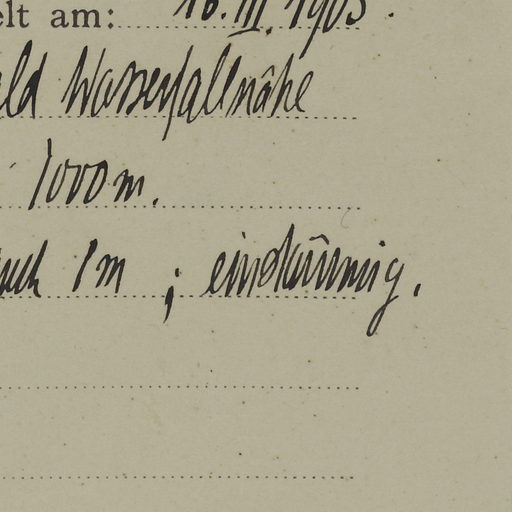 elt am: 16.III.1905.
ald Wasserfallnähe
1000 m.
auch 1 m ; einstämmig.